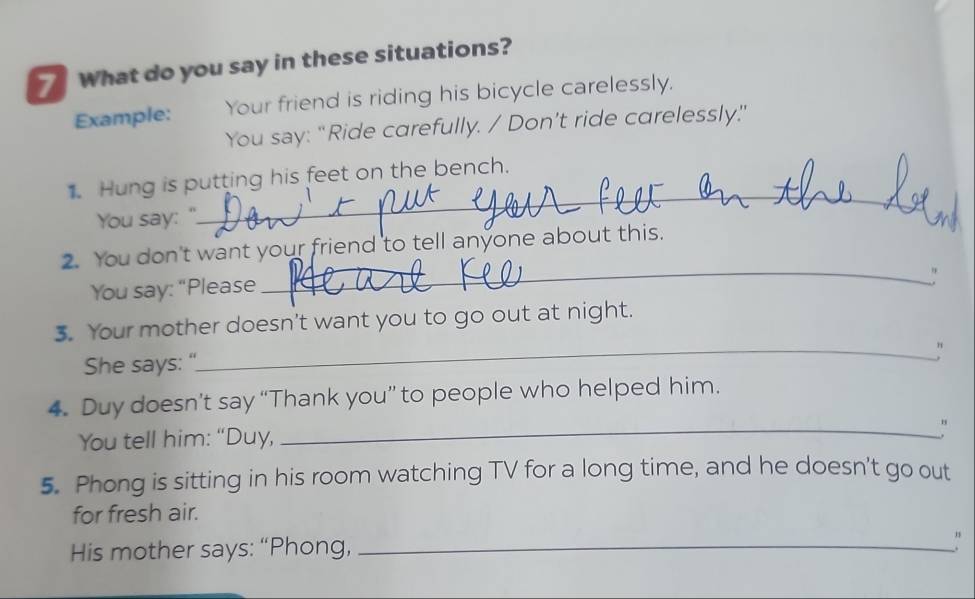 7 What do you say in these situations?
Example: Your friend is riding his bicycle carelessly.
You say: "Ride carefully. / Don't ride carelessly."
1. Hung is putting his feet on the bench.
You say: "Don't put your feet on the
2. You don't want your friend to tell anyone about this.
You say: "Please Kee ."
3. Your mother doesn't want you to go out at night.
She says: " ."
4. Duy doesn't say "Thank you" to people who helped him.
You tell him: "Duy, ."
5. Phong is sitting in his room watching TV for a long time, and he doesn't go out
for fresh air.
His mother says: "Phong, ."